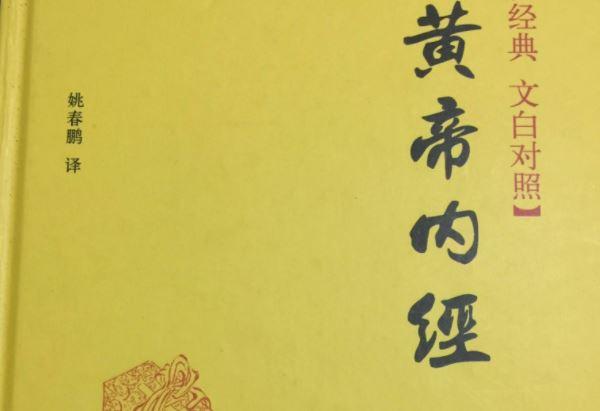 经典 文白对照】
黄帝内經
姚春鹏 译